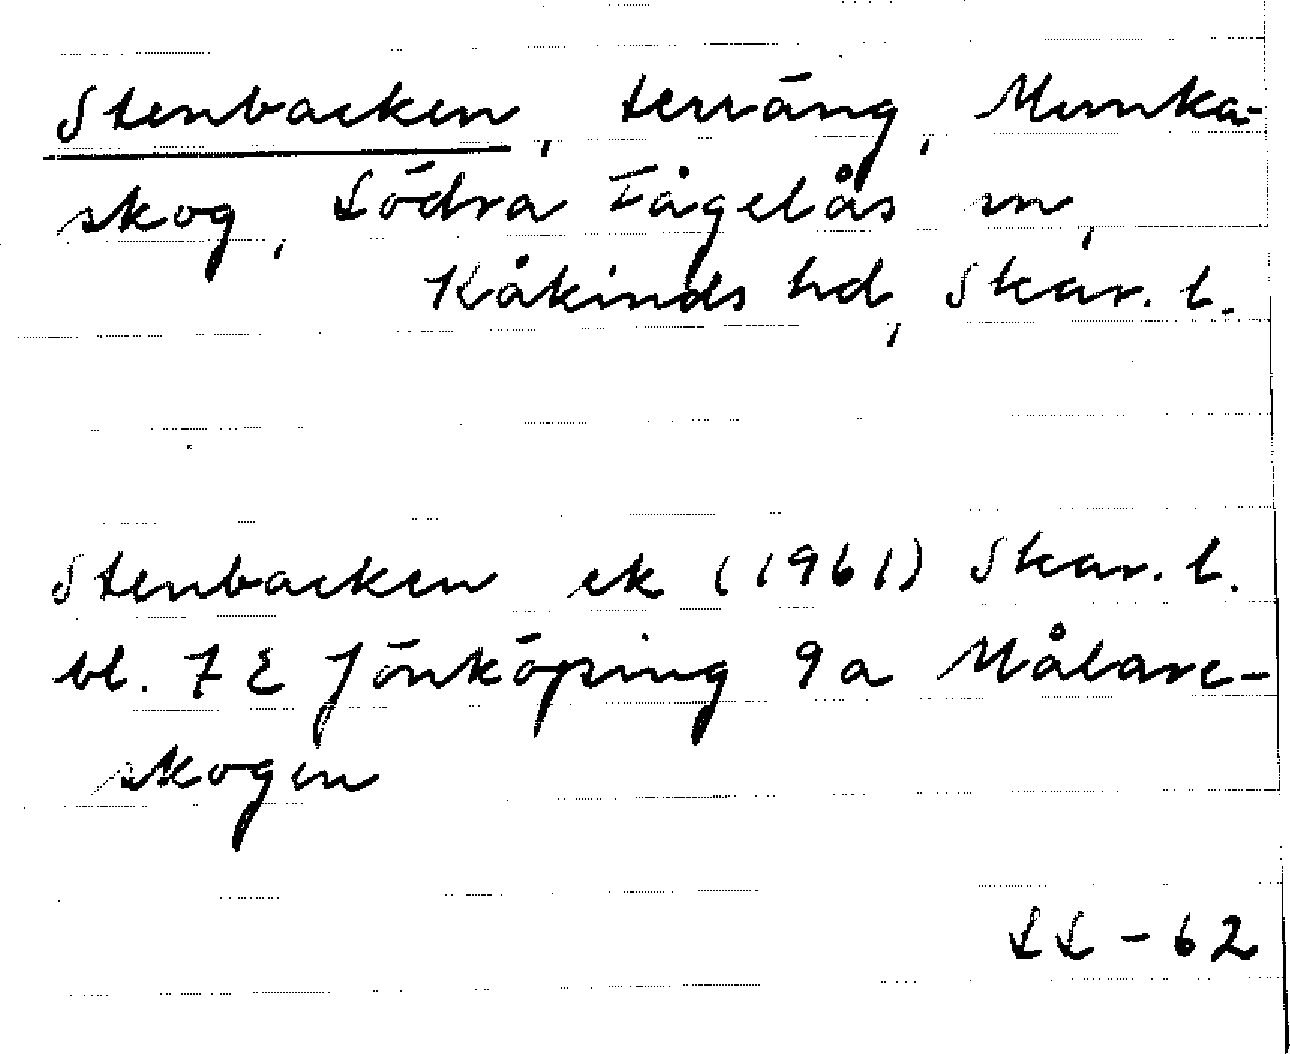 Stenbacken, terräng, Munka-
skog, Södra Fågelås sn,
Kåkinds hd, Skar. l.
Stenbacken ek (1961) Skar. l.
bl. 7 E Jönköping 9 a Målare-
skogen
LL - 62